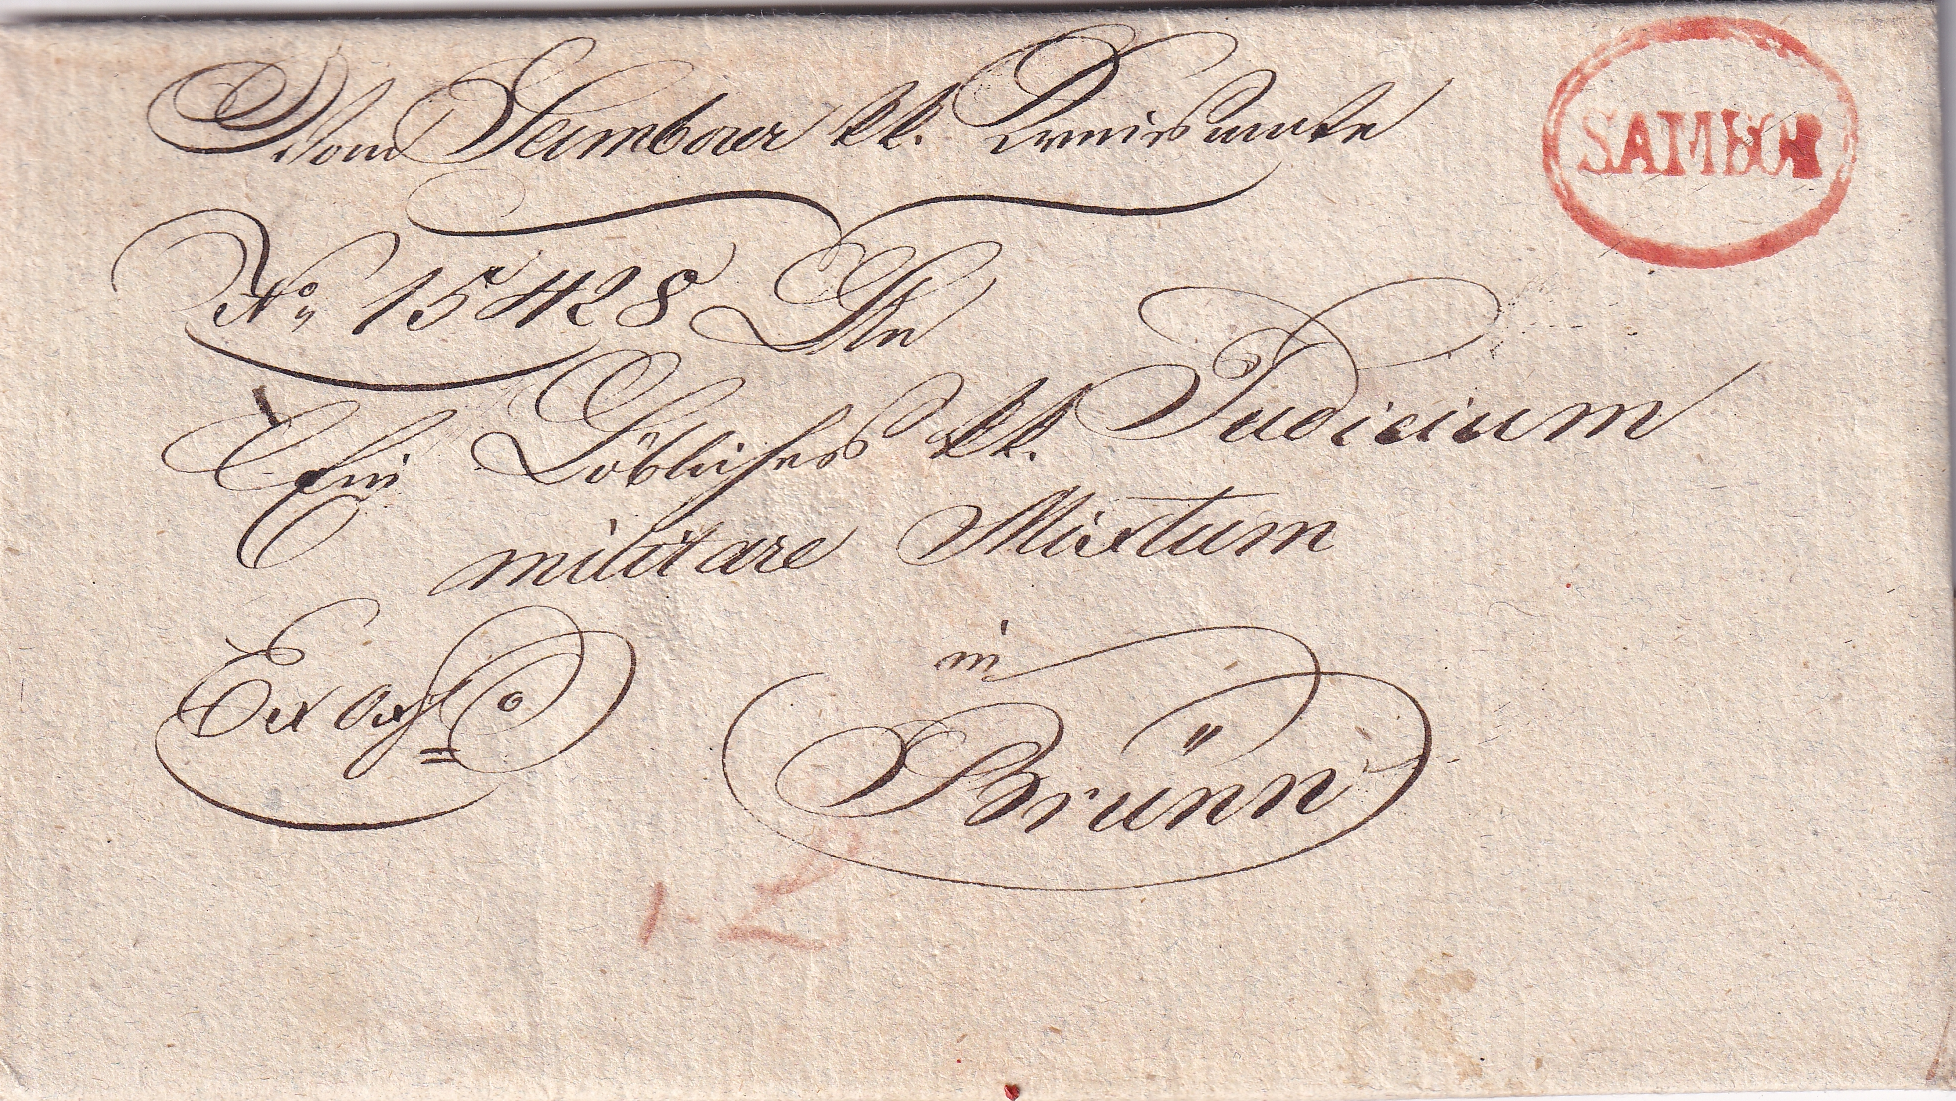 Vom Samborer kk. Kreisamte
SAMBOR
No. 15428 An
Ein Löbliches kk. Judicium
militare Mixtum
in
Ex offo
Brünn
12